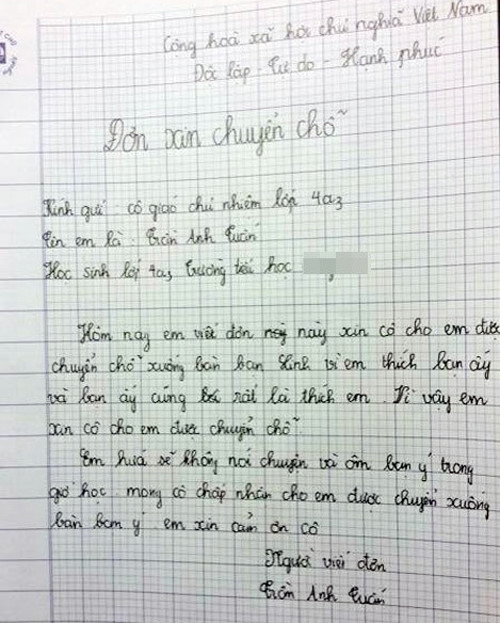 Cộng hoà xã hội chủ nghĩa Việt Nam
Độc lập - Tự do - Hạnh phúc
Đơn xin chuyển chỗ
Kính gửi: cô giáo chủ nhiệm lớp 4a3
Tên em là: Trần Anh Tuấn
Học sinh lớp 4a3 trường tiểu học
Hôm nay em viết đơn này xin cô cho em được
chuyển chỗ xuống bàn bạn Linh vì em thích bạn ấy
và bạn ấy cũng rất là thích em. Vì vậy em
xin cô cho em được chuyển chỗ.
Em hứa sẽ không nói chuyện và ôm bạn ý trong
giờ học. mong cô chấp nhận cho em được chuyển xuống
bàn bạn ý. em xin cảm ơn cô
Người viết đơn
Trần Anh Tuấn